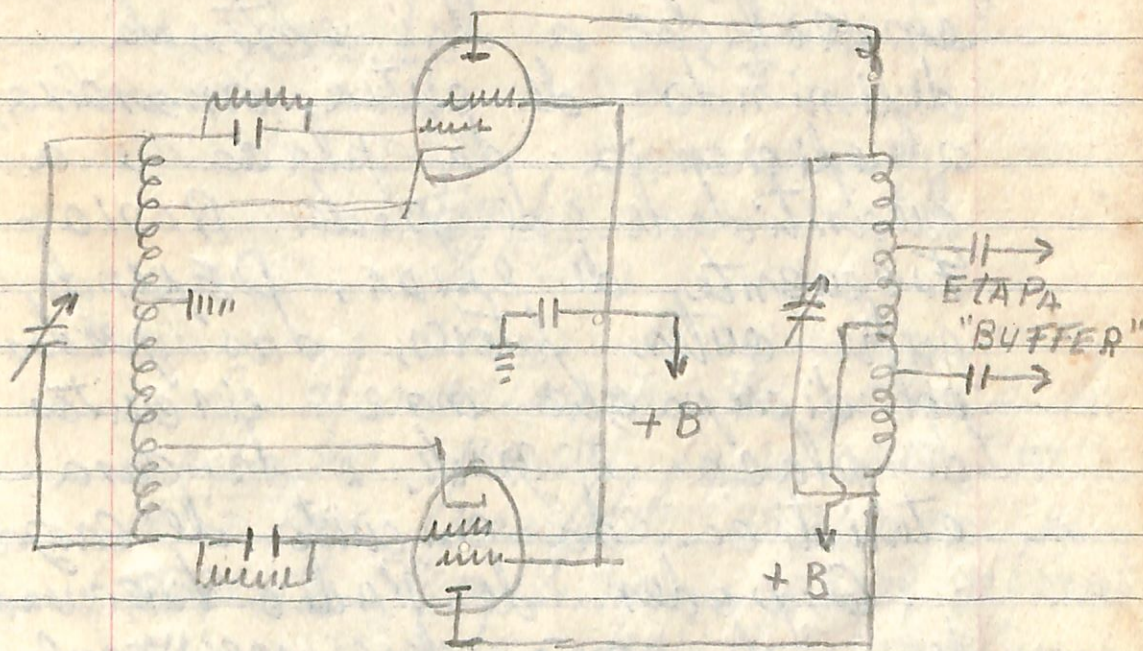 ETAPA
"BUFFER"
+ B
+ B